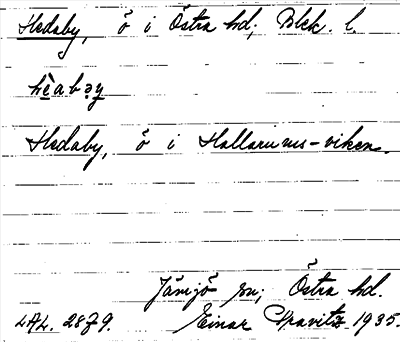 Hedaby, ö i Östra hd, Blek. l.
hèabəy
Hedaby, ö i Hallarums-viken.
Jämjö sn; Östra hd.
LAL. 2879. Einar Gravitz 1935.